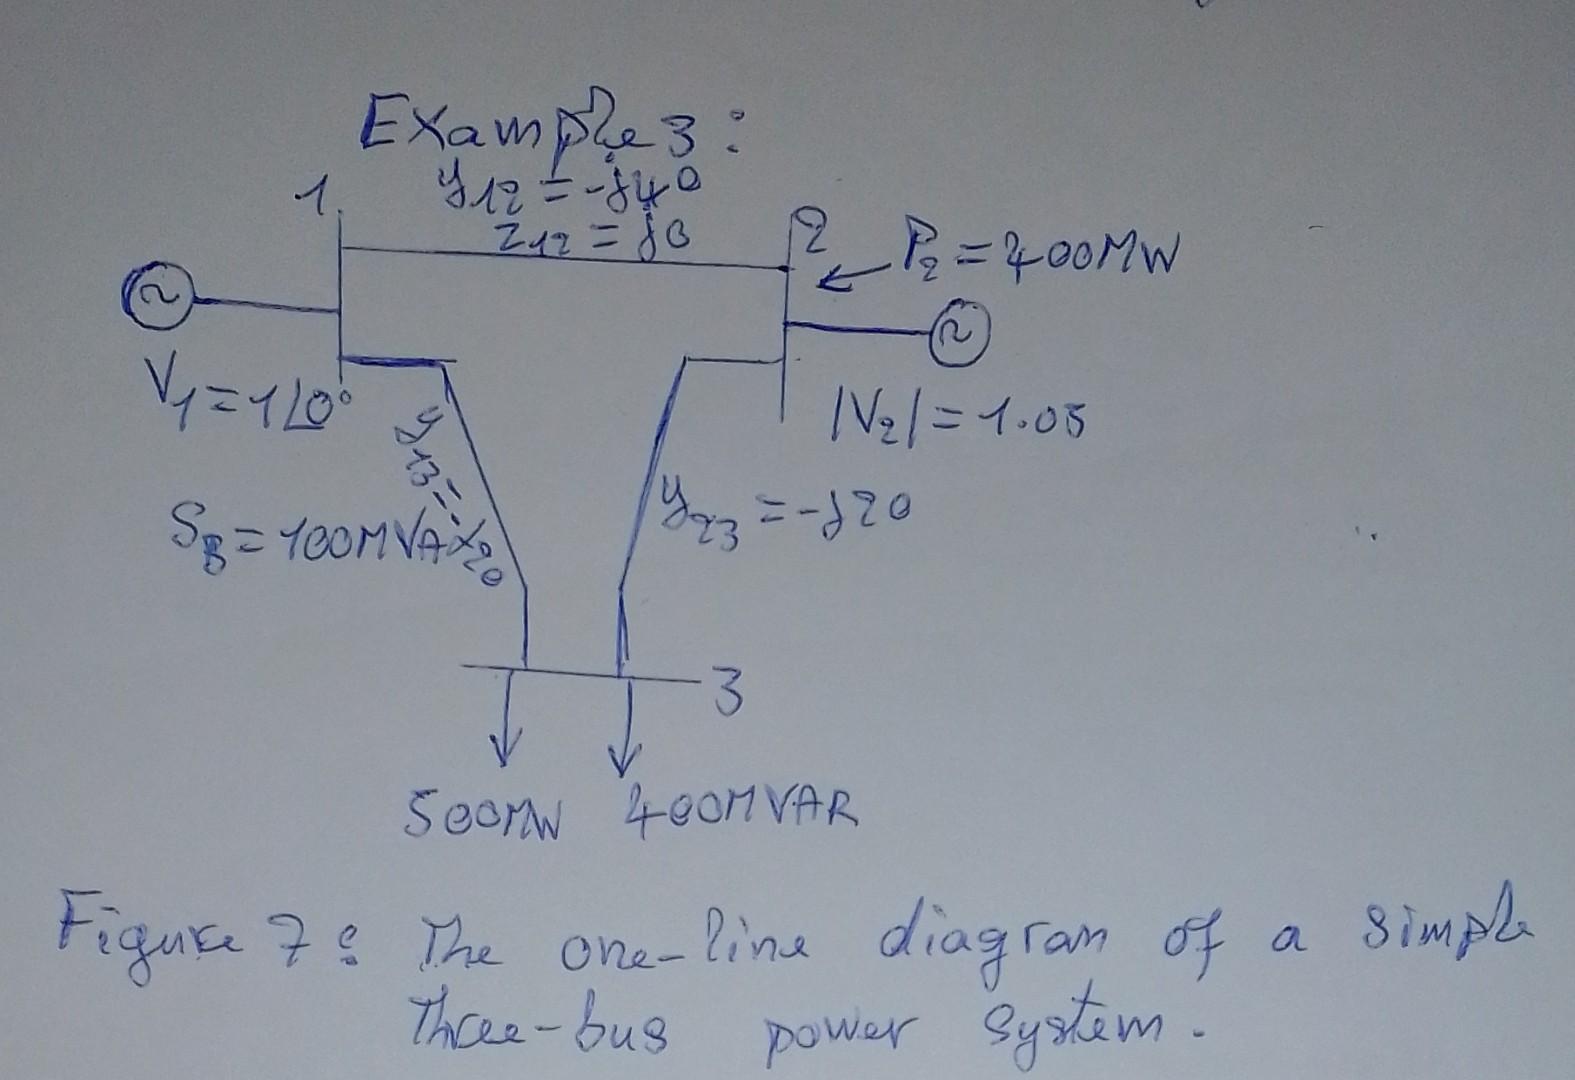 Example 3:
y12 = -j40
z12 = j0
1
2
P2 = 400MW
V1 = 1∠0°
|V2| = 1.05
y23 = -j20
SB = 100MVA
3
500MW 400MVAR
Figure 7: The one-line diagram of a simple
three-bus power system.